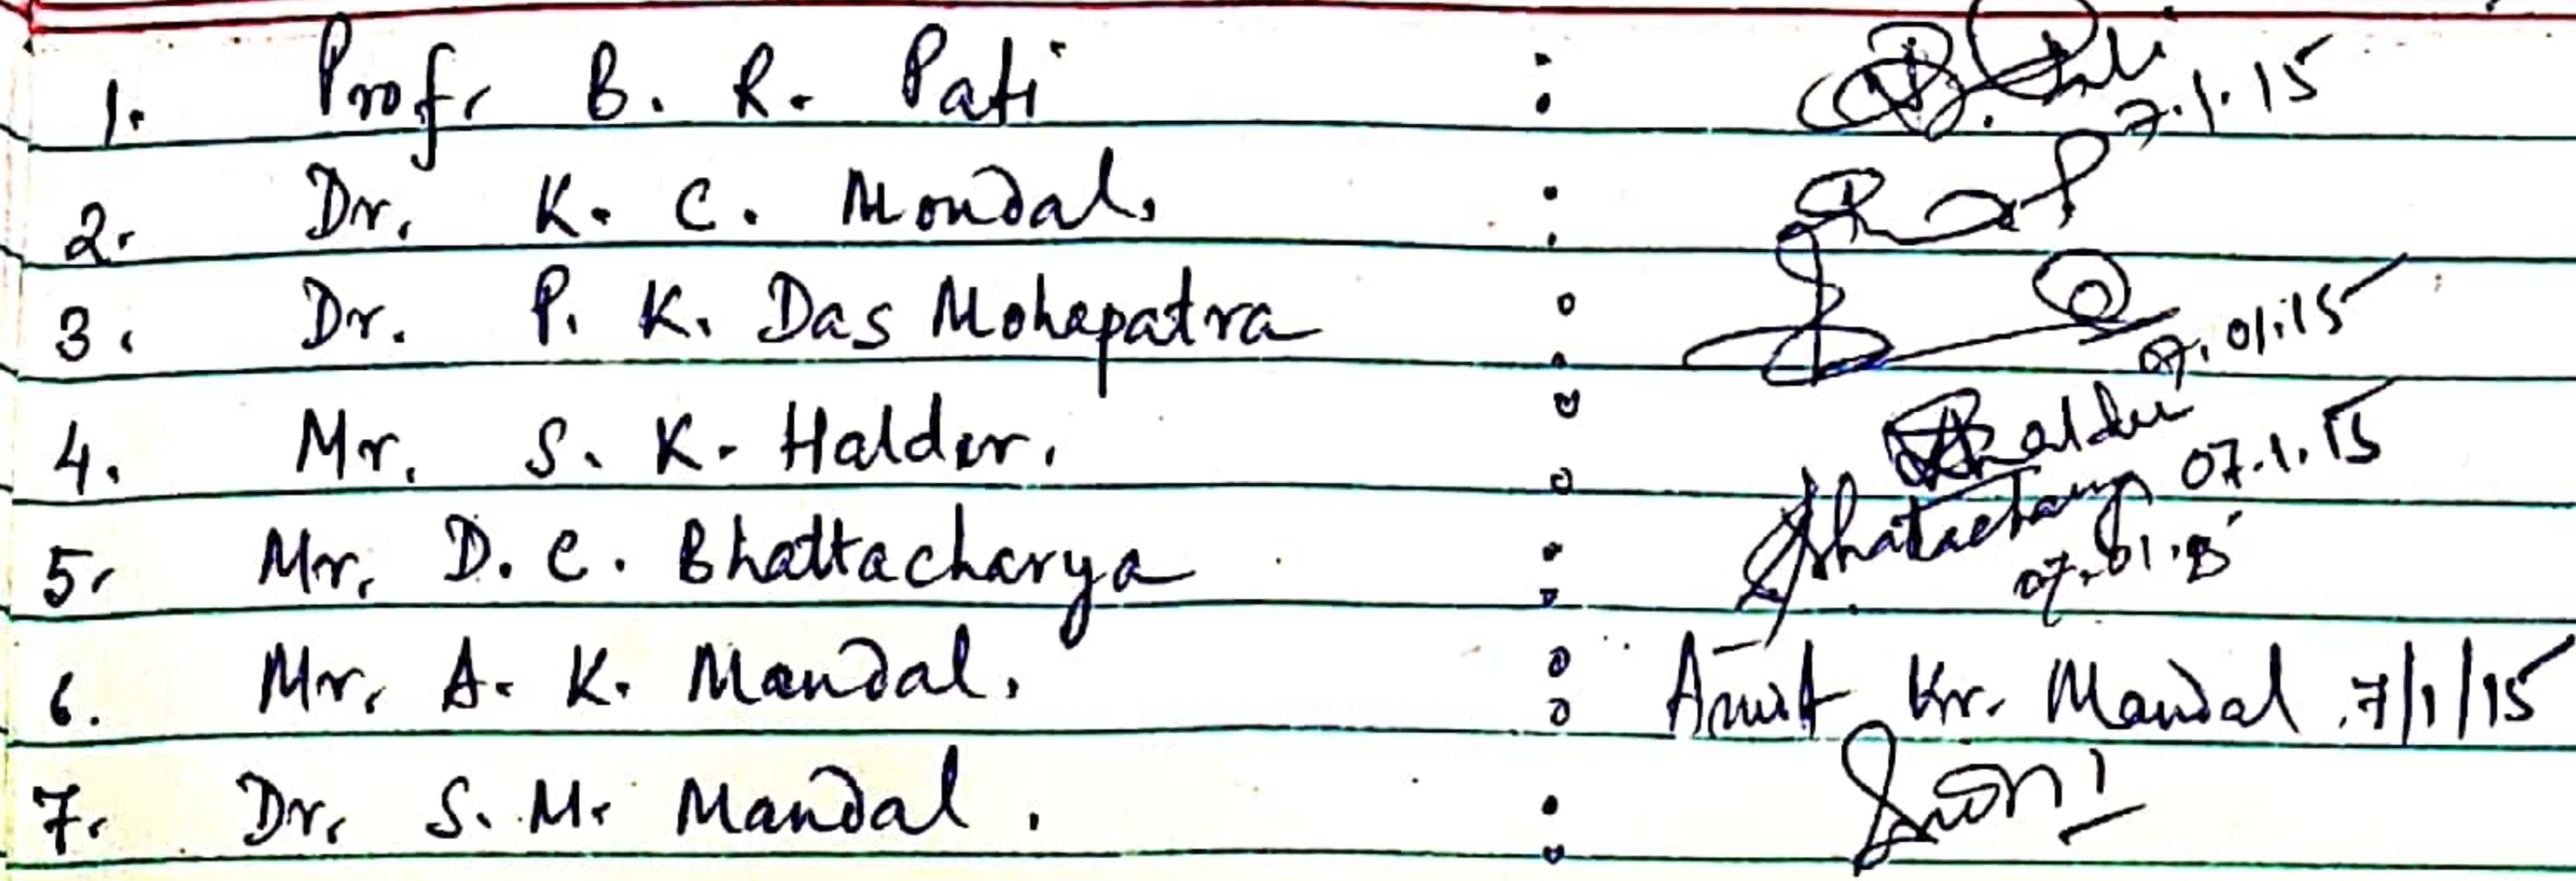 1. Prof. B. R. Pati : 7.1.15
2. Dr. K. C. Mondal. :
3. Dr. P. K. Das Mohapatra : 07.01.15
4. Mr. S. K. Halder. : Halder 07.1.15
5. Mr. D. C. Bhattacharya : Bhattacharya 07.01.15
6. Mr. A. K. Mandal. : Amit Kr. Mandal 7/1/15
7. Dr. S. M. Mandal . :